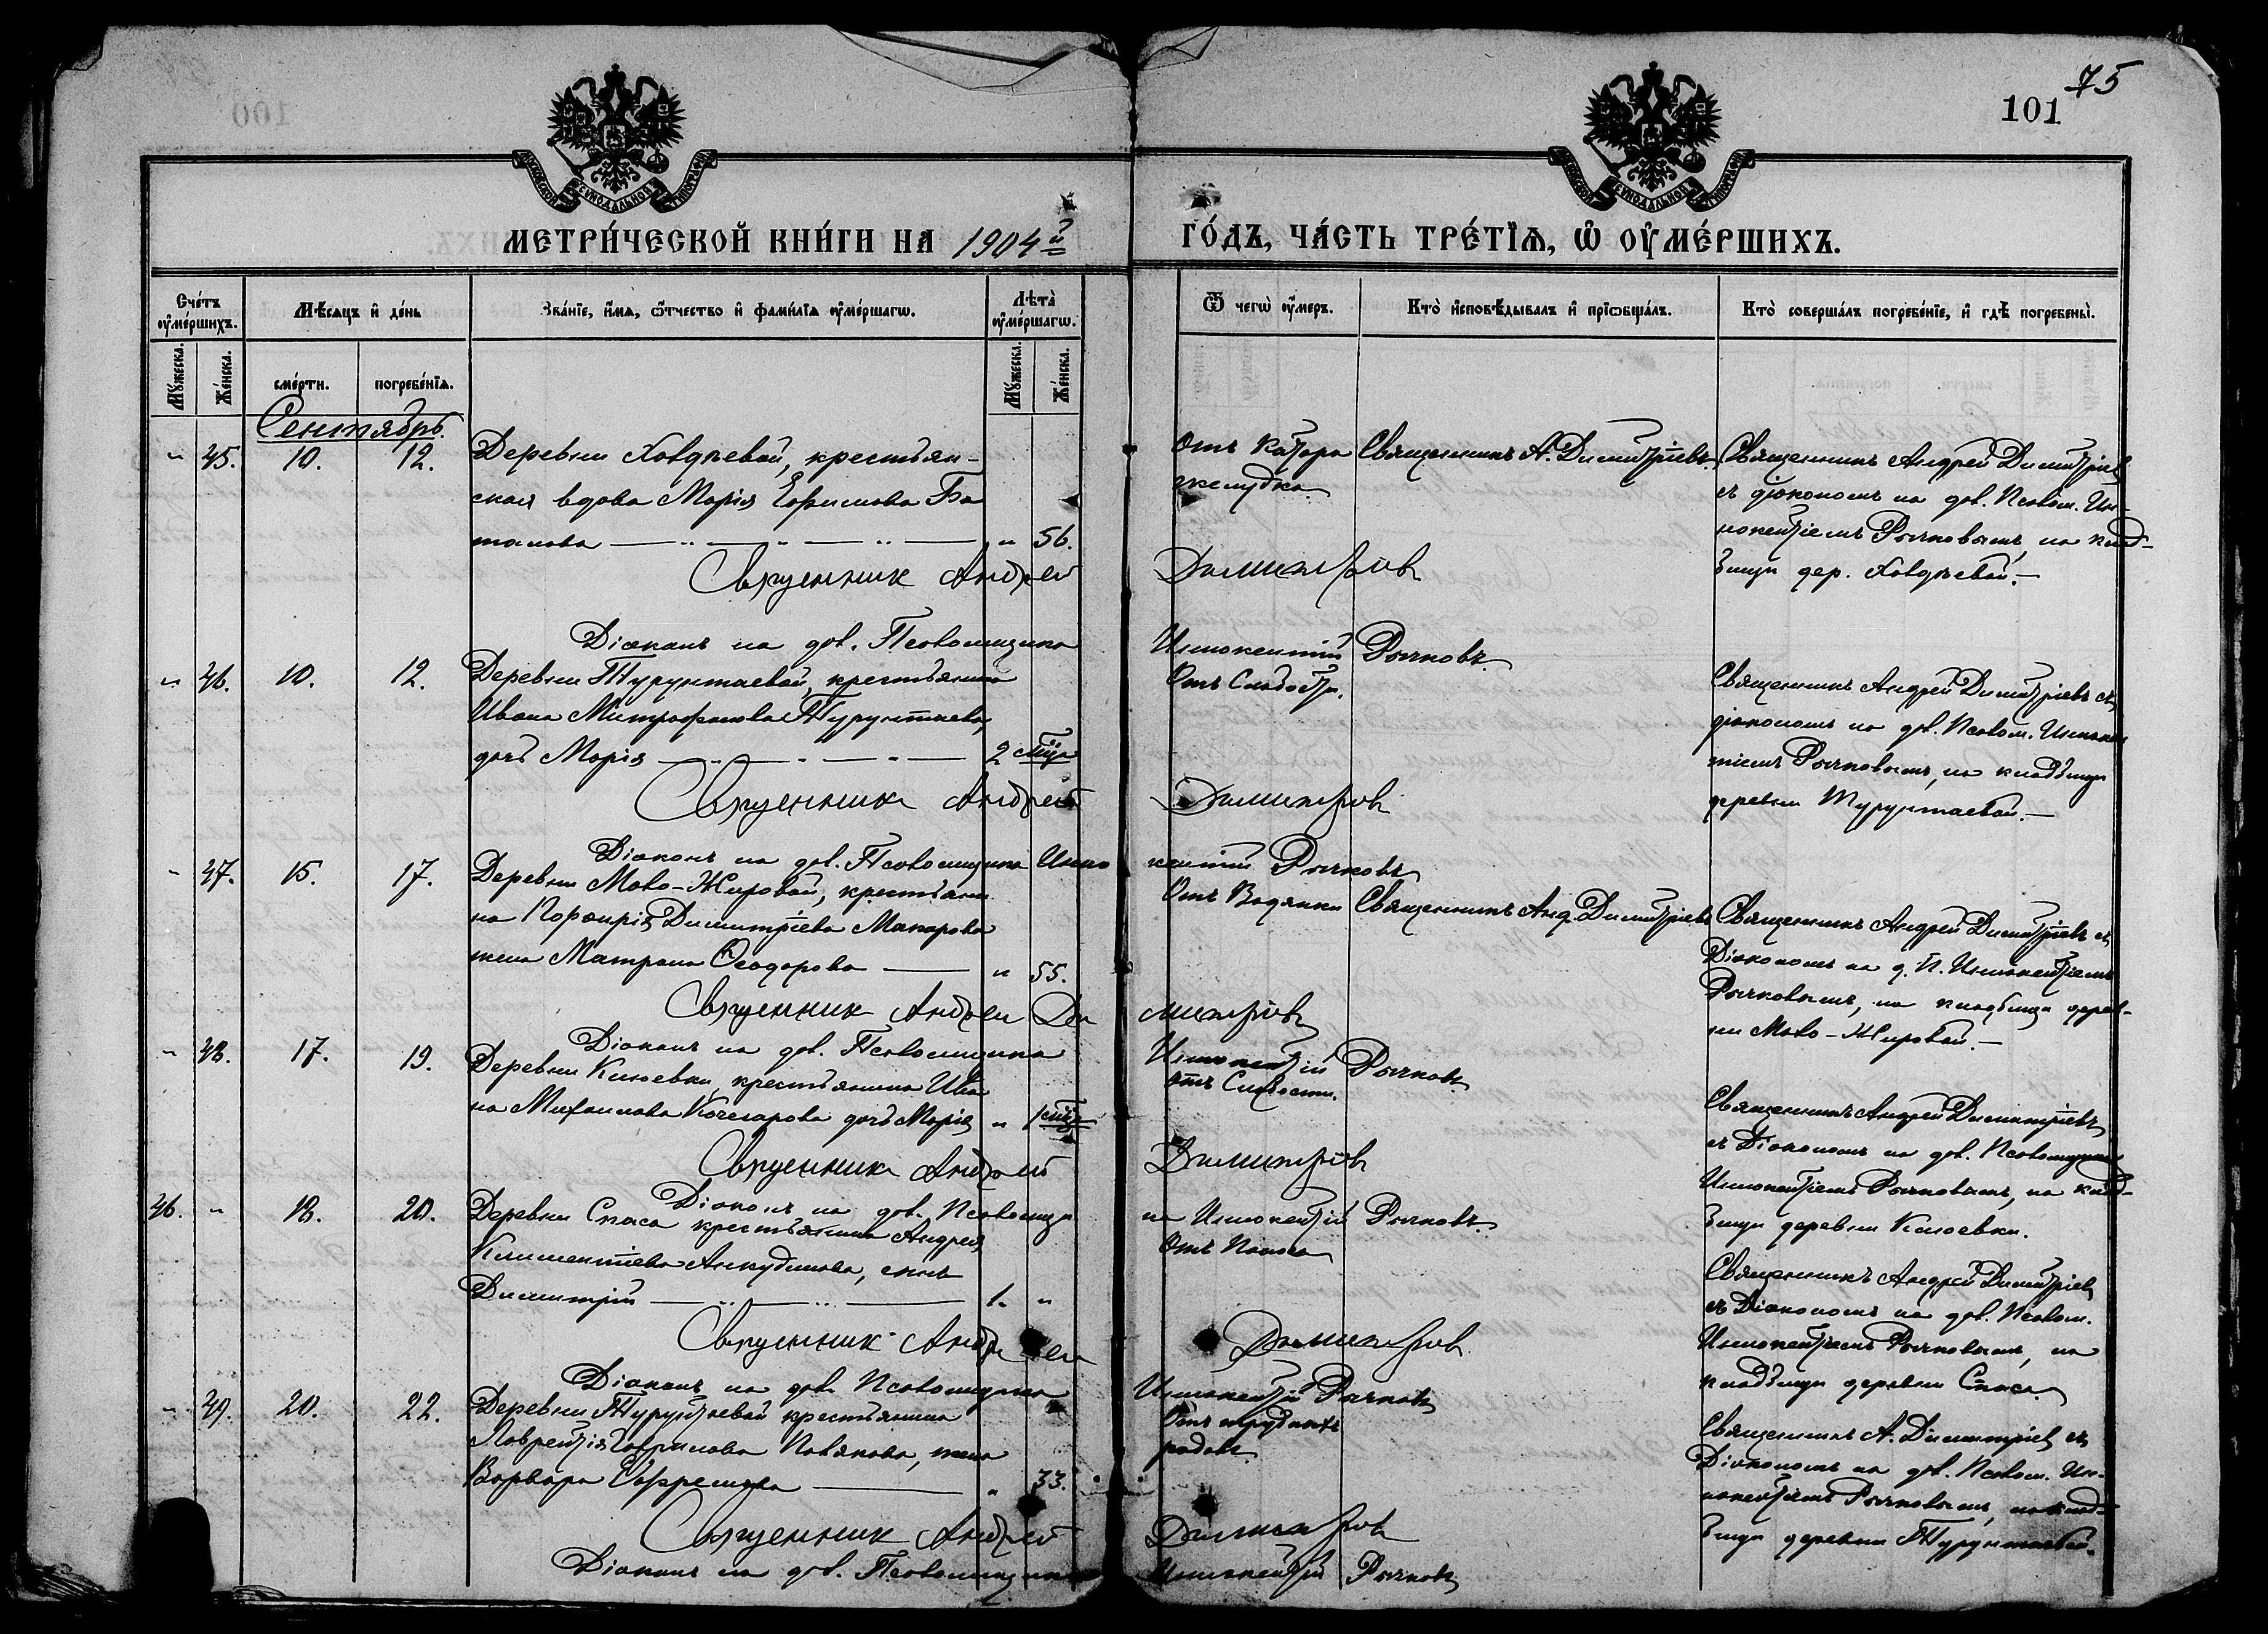 75
101
МЕТРИ́ЧЕСКОЙ КНИ́ГИ НА 1904 й
ГО́ДЪ, ЧА́СТЬ ТРЕ́ТЇѦ, Ѡ҆ ОУ҆МЕ́РШИХЪ.
Сче́тъ оу҆ме́ршихъ.
Мѣ́сяцъ и҆ де́нь
Зва́нїе, и҆́мѧ, ѻ҆́тчество и҆ фами́лїѧ оу҆ме́ршагѡ.
Лѣта̀ оу҆ме́ршагѡ.
Ѿ чегѡ̀ оу҆́меръ.
Кто̀ и҆сповѣ́дывалъ и҆ прїѡбща́лъ.
Кто̀ соверша́лъ погребе́нїе, и҆ гдѣ̀ погребены̀.
Мꙋ́жеска.
Же́нска.
сме́рти.
погребе́нїѧ.
Мꙋ́жеска.
Же́нска.
Сентябрь.
" 45. 10. 12. Деревни Ховдѣевой, крестьян-
ская вдова Марія Ефимова Ба
талова " 56.
Отъ Катара
желудка.
Священникъ А. Димитріевъ
Священникъ Андрей Димитріевъ
съ діакономъ на дов. Псалом. Ин-
нокентіемъ Рычковымъ, на клад-
бищи дер. Ховдѣевой.—
Священник Андрей Димитріевъ
Діаконъ на дов. Псаломщика Иннокентій Рычковъ.
" 46. 10. 12. Деревни Турунтаевой, крестьянина
Ивана Митрофанова Турунтаева,
дочь Марія 2 мѣц
Отъ Слабости.
Священникъ Андрей Димитріевъ съ
діакономъ на дов. Псалом. Иннокен
тіемъ Рычковымъ, на кладбищи
деревни Турунтаевой.—
Священник Андрей Димитріевъ
Діаконъ на дов. Псаломщика Иннокентій Рычковъ
" 47. 15. 17. Деревни Мало-Жировой, крестьяни
на Порфирія Димитріева Макарова
жена Матрона Ѳеодорова " 55.
Отъ Водянки
Священникъ Анд. Димитріевъ
Священникъ Андрей Димитріевъ съ
Діакономъ на д. П. Иннокентіемъ
Рычковымъ, на кладбищи дерев-
ни Мало-Жировой.—
Священник Андрей Димитріевъ
Діаконъ на дов. Псаломщика Иннокентій Рычковъ
" 48. 17. 19. Деревни Клюевки, крестьянина Ива
на Михаилова Кочегарова дочь Марія " 1 мѣц
отъ Слабости.
Священникъ Андрей Димитріевъ
съ Діакономъ на дов. Псаломщика
Иннокентіемъ Рычковымъ, на клад-
бищи деревни Клюевки.
Священник Андрей Димитріевъ
Діаконъ на дов. Псаломщи
ка Иннокентій Рычковъ.
46. " 18. 20. Деревни Спаса крестьянина Андрея
Климентіева Анкудинова, сынъ
Димитрій 1. "
Отъ Поноса
Священникъ Андрей Димитріевъ
съ Діакономъ на дов. Псалом.
Иннокентіемъ Рычковымъ, на
кладбищи деревни Спаса.
Священник Андрей Димитріев
Діаконъ на дов. Псаломщика Иннокентій Рычковъ
" 49. 20. 22. Деревни Турунтаевой крестьянина
Лаврентія Гаврилова Полякова, жена
Варвара Ефремова " 33.
Отъ трудныхъ
родовъ
Священникъ А. Димитріевъ съ
Діакономъ на дов. Псалом. Ин-
нокентіемъ Рычковымъ, на клад-
бищи деревни Турунтаевой.
Священник Андрей Димитріев
Діаконъ на дов. Псаломщика Иннокентій Рычковъ